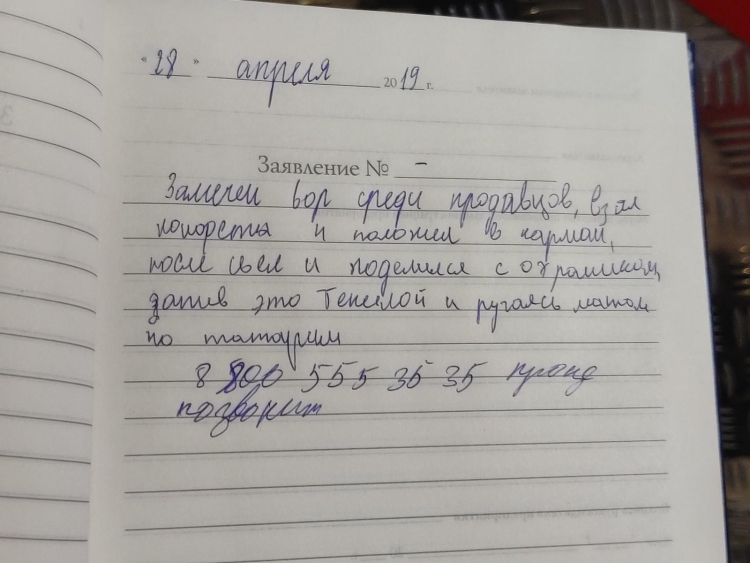 "28" апреля 2019 г.
Заявление № –
Замечен вор среди продавцов, взял
и положил в карман,
после сьел и поделился с охранником,
запив это Текилой и ругаясь матом
по
8 800 555 35 35
позвонит